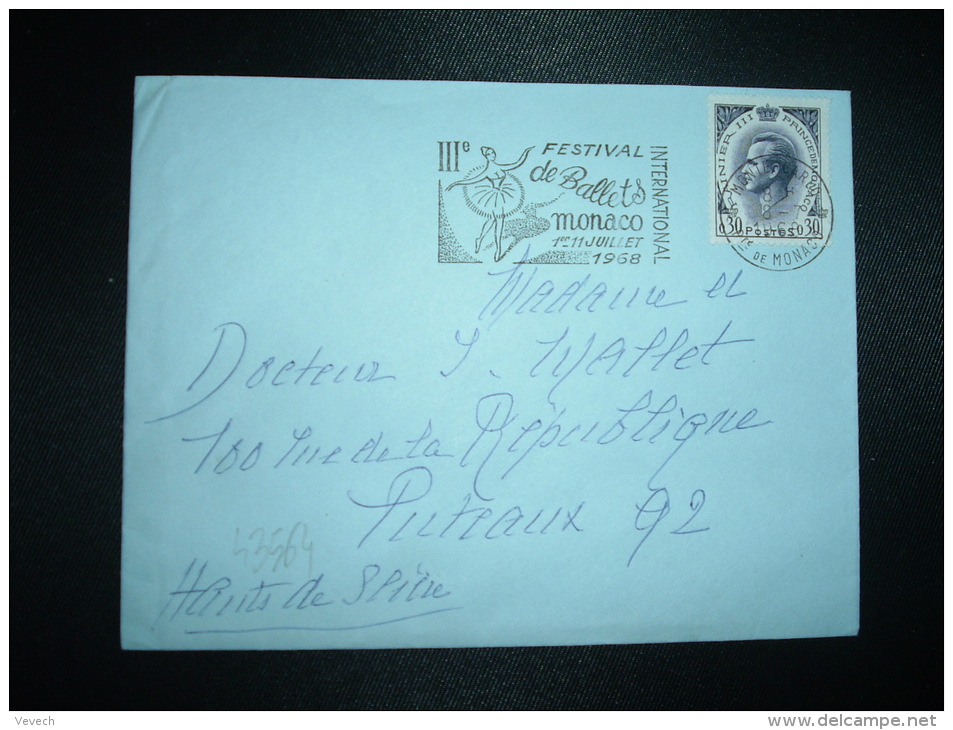 IIIe FESTIVAL INTERNATIONAL
de Ballets
monaco
1er 11 JUILLET
1968
RAINIER III PRINCE DE MONACO
0,30 POSTES 0,30
MONTE-CARLO
Pté DE MONACO
Madame et
Docteur J. Mallet
100 rue de la République
Puteaux 92
43564
Hauts de Seine
Vevech
www.delcampe.net